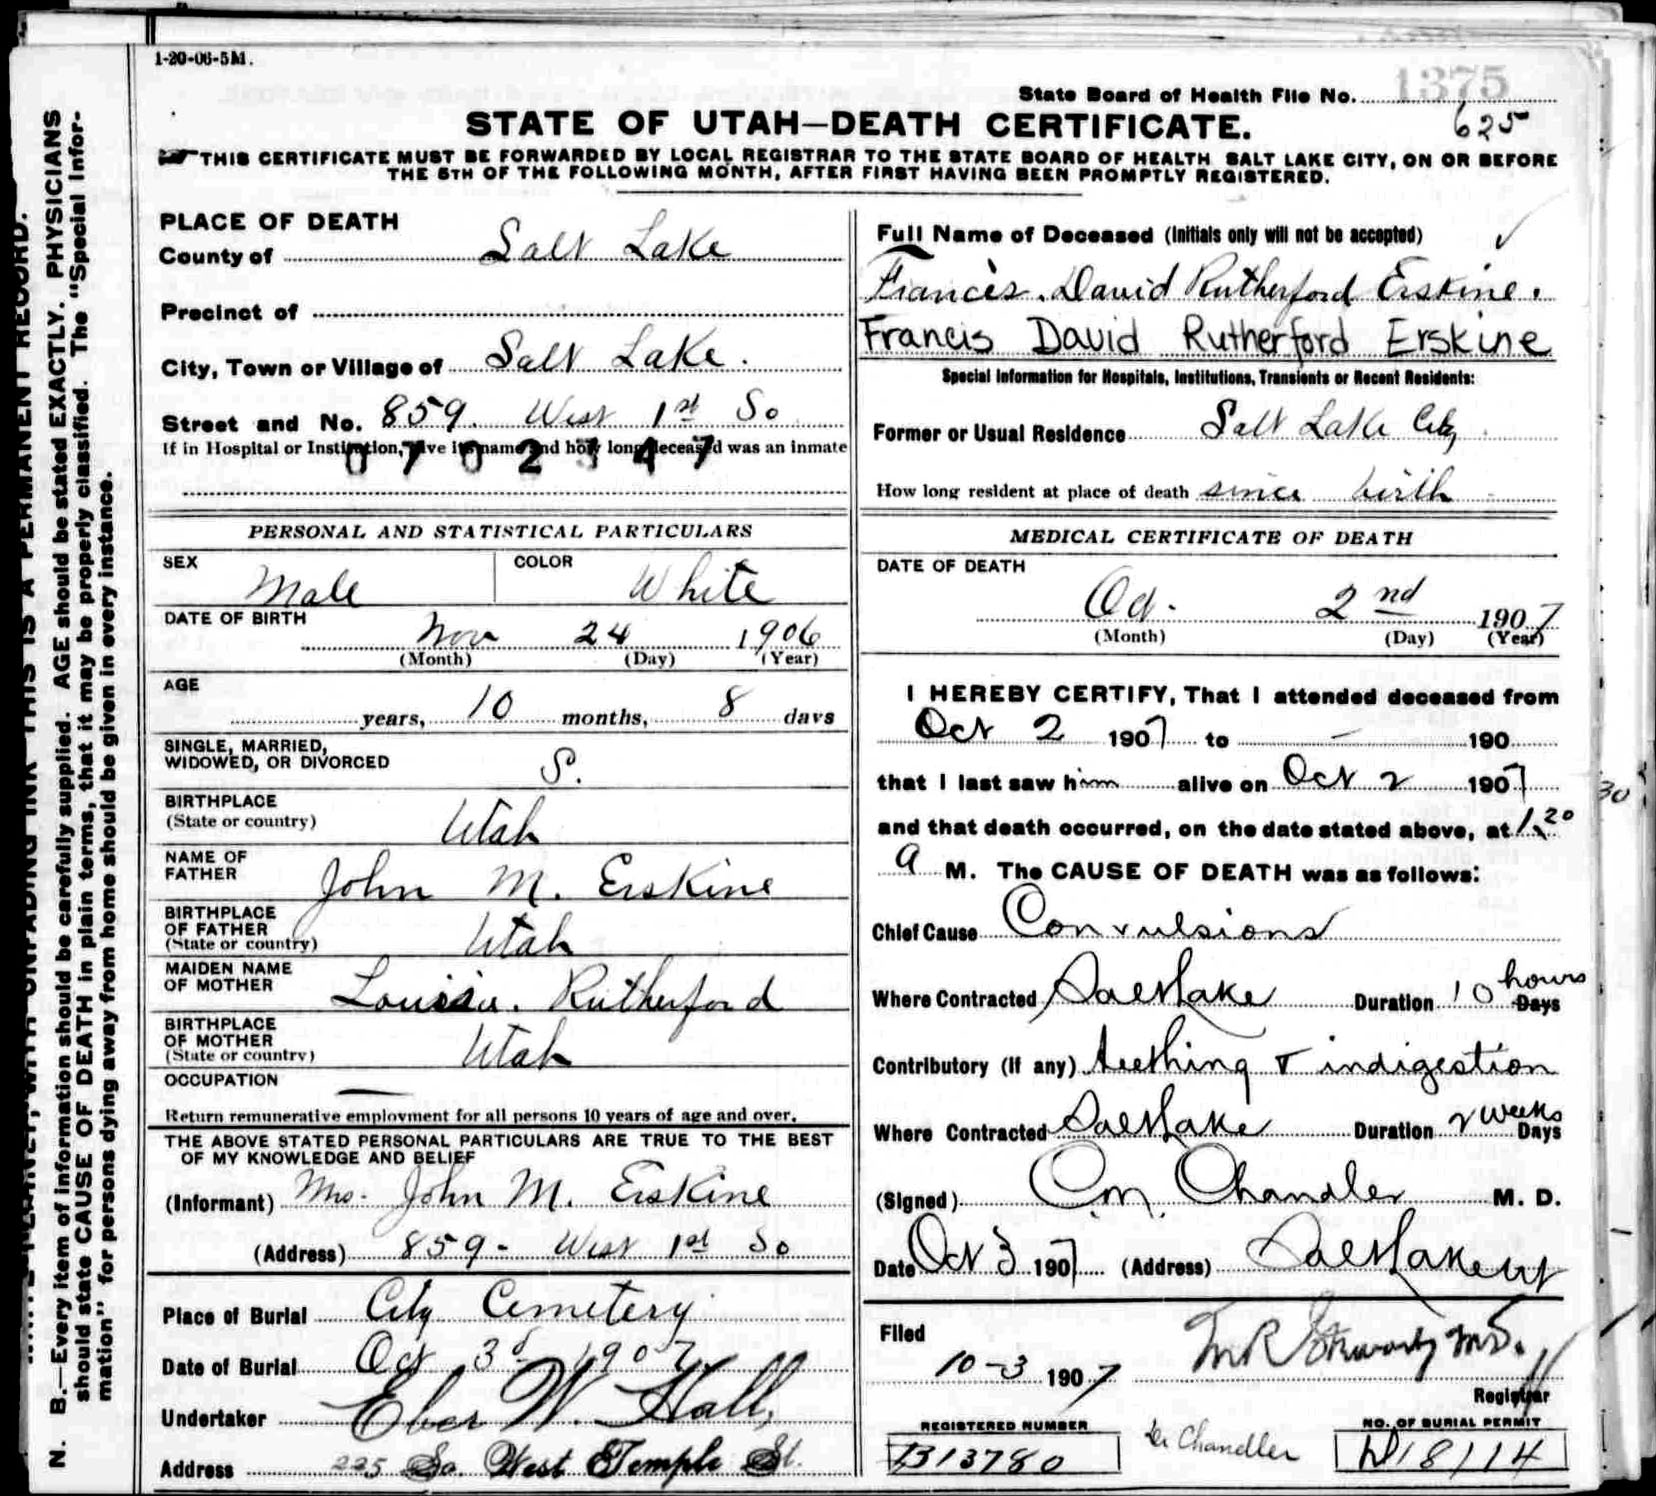 1-20-06-5M.
State Board of Health File No. 1375
625
STATE OF UTAH—DEATH CERTIFICATE.
THIS CERTIFICATE MUST BE FORWARDED BY LOCAL REGISTRAR TO THE STATE BOARD OF HEALTH SALT LAKE CITY, ON OR BEFORE
THE 5TH OF THE FOLLOWING MONTH, AFTER FIRST HAVING BEEN PROMPTLY REGISTERED.
PLACE OF DEATH
County of Salt Lake
Precinct of
City, Town or Village of Salt Lake.
Street and No. 859. West 1st So
If in Hospital or Institution, give its name and how long deceased was an inmate
PERSONAL AND STATISTICAL PARTICULARS
SEX Male COLOR White
DATE OF BIRTH Nov 24 1906
(Month) (Day) (Year)
AGE
years, 10 months, 8 days
SINGLE, MARRIED,
WIDOWED, OR DIVORCED S.
BIRTHPLACE
(State or country) Utah
NAME OF
FATHER John M. Erskine
BIRTHPLACE
OF FATHER
(State or country) Utah
MAIDEN NAME
OF MOTHER Louisa. Rutherford
BIRTHPLACE
OF MOTHER
(State or country) Utah
OCCUPATION —
Return remunerative employment for all persons 10 years of age and over.
THE ABOVE STATED PERSONAL PARTICULARS ARE TRUE TO THE BEST
OF MY KNOWLEDGE AND BELIEF
(Informant) Mrs. John M. Erskine
(Address) 859- West 1st So
Place of Burial City Cemetery
Date of Burial Oct 3d 1907.
Undertaker Eber W. Hall,
Address 225 So. West Temple St.
Full Name of Deceased (Initials only will not be accepted)
Francis. David Rutherford Erskine.
Francis David Rutherford Erskine
Special Information for Hospitals, Institutions, Transients or Recent Residents:
Former or Usual Residence Salt Lake City
How long resident at place of death since birth
MEDICAL CERTIFICATE OF DEATH
DATE OF DEATH
Oct. 2nd 1907
(Month) (Day) (Year)
I HEREBY CERTIFY, That I attended deceased from
Oct 2 1907 to — 190
that I last saw him alive on Oct 2 1907
and that death occurred, on the date stated above, at 1.20
a M. The CAUSE OF DEATH was as follows:
Chief Cause Convulsions
Where Contracted Salt Lake Duration 10 hours Days
Contributory (if any) teething & indigestion
Where Contracted Salt Lake Duration 2 weeks Days
(Signed) C.M. Chandler M. D.
Date Oct 3 1907 (Address) Salt Lake City
Filed
10-3 1907
Registrar
REGISTERED NUMBER
B13780
Dr Chandler
NO. OF BURIAL PERMIT
D18114
30
N. B.—Every item of information should be carefully supplied. AGE should be stated EXACTLY. PHYSICIANS
should state CAUSE OF DEATH in plain terms, that it may be properly classified. The "Special Infor-
mation" for persons dying away from home should be given in every instance.
WITH UNFADING INK THIS IS A PERMANENT RECORD.